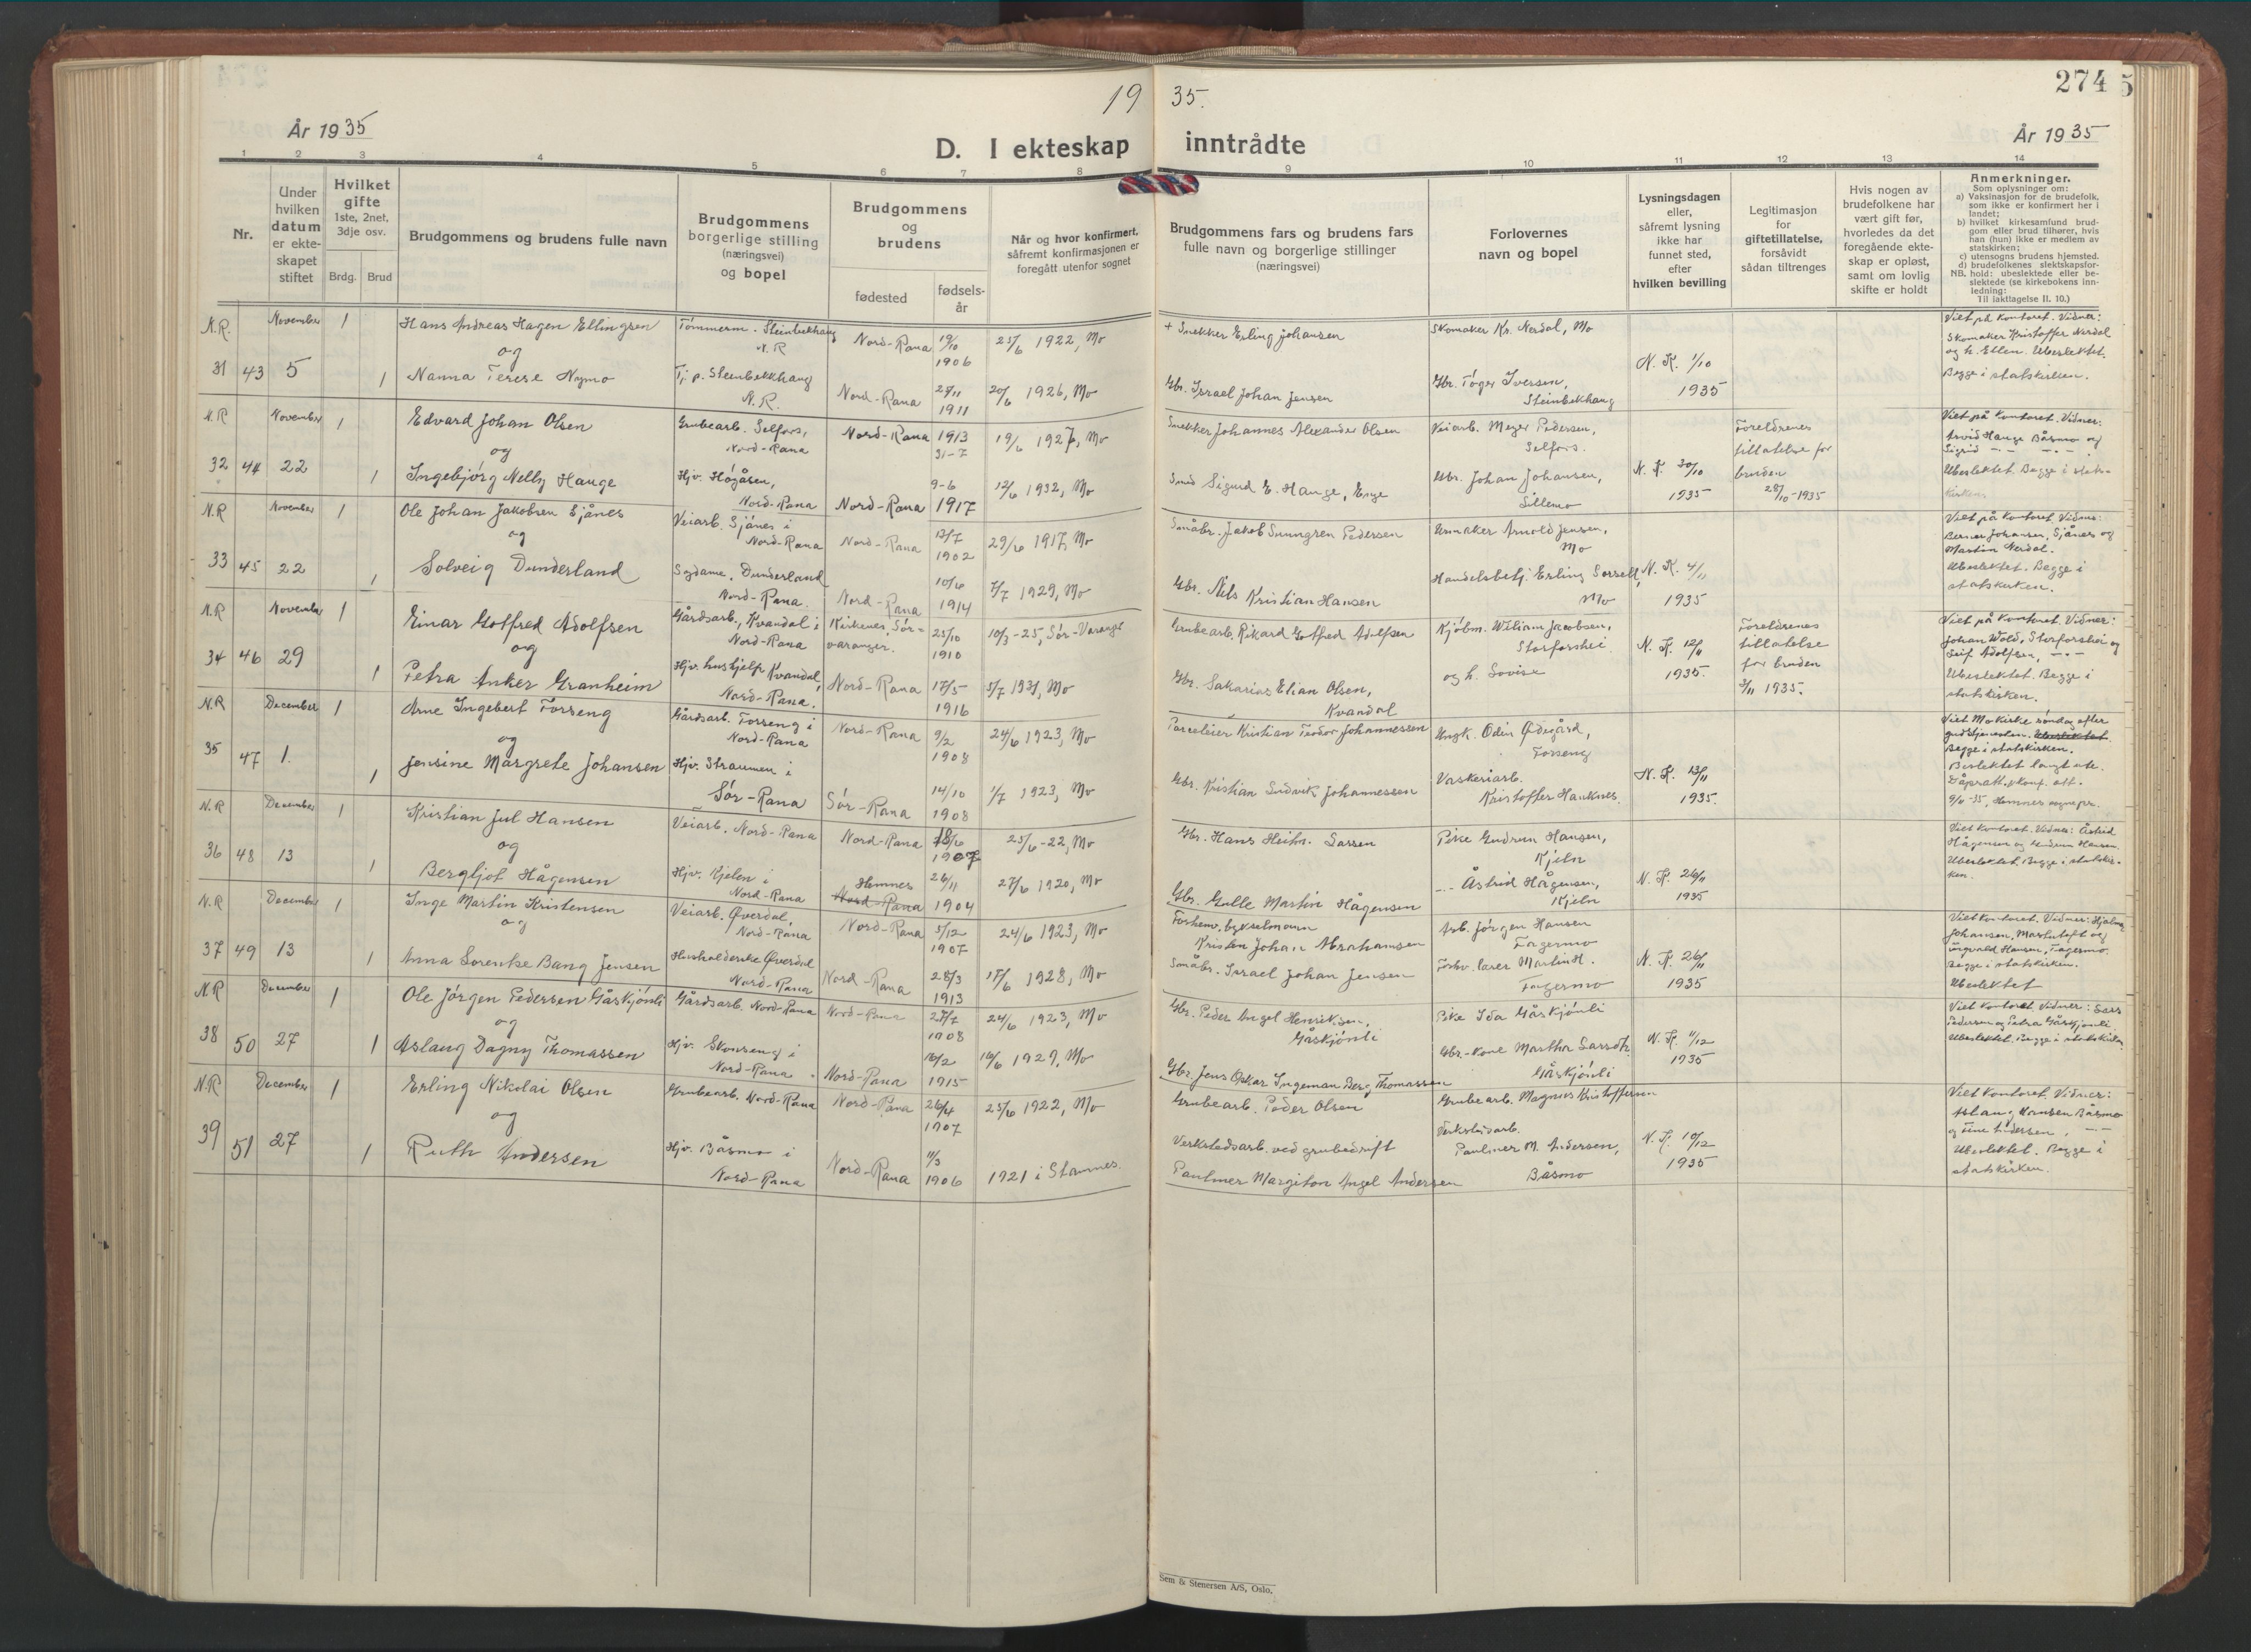 274
19 35.
År 1935
D. I ekteskap inntrådte
År 1935
1 2 3 4 5 6 7 8 9 10 11 12 13 14
Nr.
Under hvilken datum er ekteskapet stiftet
Hvilket gifte 1ste, 2net, 3dje osv.
Brdg. Brud
Brudgommens og brudens fulle navn
Brudgommens borgerlige stilling (næringsvei) og bopel
Brudgommens og brudens
fødested
fødsels-år
Når og hvor konfirmert, såfremt konfirmasjonen er foregått utenfor sognet
Brudgommens fars og brudens fars fulle navn og borgerlige stillinger (næringsvei)
Forlovernes navn og bopel
Lysningsdagen eller, såfremt lysning ikke har funnet sted, efter hvilken bevilling
Legitimasjon for giftetillatelse, forsåvidt sådan tiltrenges
Hvis nogen av brudefolkene har vært gift før, hvorledes da det foregående ekteskap er opløst, samt om lovlig skifte er holdt
Anmerkninger.
Som oplysninger om:
a) Vaksinasjon for de brudefolk, som ikke er konfirmert her i landet;
b) hvilket kirkesamfund brudgom eller brud tilhører, hvis han (hun) ikke er medlem av statskirken;
c) utensogns brudens hjemsted.
d) brudefolkenes slektskapsforhold: ubeslektede eller beslektede (se kirkebokens innledning:
NB. Til iakttagelse II. 10.)
N.R. 31 43 November 5 1 Hans Andreas Hagen Ellingsen
Tømmerm. Steinbekkhaug N.R
Nord-Rana 19/10 1906 25/6 1922, Mo
+ Snekker Erling Johansen
Skomaker Kr. Nerdal, Mo
og
1 Nanna Terese Nymo
Tj. p. Steinbekkhaug N.R.
Nord-Rana 27/11 1911 20/6 1926, Mo
Gbr. Israel Johan Jensen
Gbr. Tøger Iversen, Steinbekhaug
N. K. 1/10 1935
Viet på kontoret. Vidner: Skomaker Kristoffer Nerdal og h. Ellen. Ubeslektet. Begge i statskirken.
N.R 32 44 November 22 1 Edvard Johan Olsen
Grubearb. Selfors, Nord-Rana
Nord-Rana 1913 31-7 19/6 1927, Mo
Snekker Johannes Alexander Olsen
Veiarb. Meyer Pedersen, Selfors.
og
1 Ingebjørg Nelly Hauge
Hjv. Høgåsen, Nord-Rana
Nord-Rana 9-6 1917 12/6 1932, Mo
Smed Sigurd E. Hauge,
Gbr. Johan Johansen,
N. K. 30/10 1935
Foreldrenes tillatelse for bruden 28/10-1935
Viet på kontoret. Vidner: Arvid Hauge Båsmo og Sigrid -"- -"-. Ubeslektet. Begge i statskirken.
N.R 33 45 November 22 1 Ole Johan Jakobsen Sjånes
Veiarb. Sjånes i Nord-Rana
Nord-Rana 13/7 1902 29/6 1917, Mo
Småbr. Jakob Pedersen
Urmaker Arnold Jensen, Mo
og
1 Solveig Dunderland
Dunderland Nord-Rana.
Nord-Rana 10/6 1914 7/7 1929, Mo
Gbr. Nils Kristian Hansen
Handelsbetj. Erling Mo
N. K. 4/11 1935
Viet på kontoret. Vidner: Berner Johansen, Sjånes og Martin Nerdal. Ubeslektet. Begge i statskirken.
N.R 34 46 November 29 1 Einar Gotfred Adolfsen
Gårdsarb., Kvandal i Nord-Rana
Kirkenes, Sør-varanger. 25/10 1910 10/3-25, Sør-Varanger
Grubearb. Rikard Gotfred Adolfsen
Kjøbm. Wiliam Jacobsen, Storforshei
og
1 Petra Anker Granheim
Hjv. hushjelp Kvandal, Nord-Rana.
Nord-Rana 17/5 1916 5/7 1931, Mo
Gbr. Sakarias Elian Olsen, Kvandal
og h. Lovise
N. K. 12/11 1935.
Foreldrenes tillatelse for bruden 3/11 1935.
Viet på kontoret. Vidner: Johan Wold, Storforshei og Leif Adolfsen, -"-. Ubeslektet. Begge i statskirken.
N.R 35 47 December 1. 1 Arne Ingebert Forseng
Gårdsarb. Forseng i Nord-Rana
Nord-Rana 9/2 1908 24/6 1923, Mo
Parceleier Kristian Teodor Johannessen
Ungk. Odin Ødegård, Forseng
og
1 Jensine Margrete Johansen
Hjv. Straumen i Sør-Rana
Sør-Rana 14/10 1908 1/7 1923, Mo
Gbr. Kristian Ludvik Johannessen
Vaskeriarb. Kristoffer Hauknes.
N. K. 13/11 1935.
Viet Mo kirke søndag efter gudstjenesten. Ubeslektet. Begge i statskirken. Beslektet langt ute. Dåpsatt. & konf. att. 9/11-35, Hemnes sognepr.
N.R 36 48 December 13 1 Kristian Jul Hansen
Veiarb. Nord-Rana
Nord-Rana 18/6 1907 25/6-22, Mo
Gbr. Hans Heitm. Larsen
Pike Gudrun Hansen, Kjeln
og
1 Bergljot Hågensen
Hjv. Kjelen i Nord-Rana
Hemnes Nord-Rana 26/11 1904 27/6 1920, Mo
Gbr. Martin Hågensen
-"- Åstrid Hågensen, Kjeln
N. K. 26/11 1935
Viet kontoret. Vidner: Åstrid Hågensen og Gudrun Hansen. Ubeslektet. Begge i statskirken.
N.R 37 49 December 13 1 Inge Martin Kristensen
Veiarb. Øverdal, Nord-Rana
Nord-Rana 5/12 1907 24/6 1923, Mo
Forhenv. bykselmann Kristen Johan Abrahamsen
Arb. Jørgen Hansen Fagermo
og
1 Anna Lorentse Bang Jensen
Husholderske Øverdal Nord-Rana
Nord-Rana 28/3 1913 17/6 1928, Mo
Småbr. Israel Johan Jensen
Forhv. lærer Martin H. Fagermo
N. K. 26/11 1935
Viet kontoret. Vidner: Hjalmar Johansen, og Ingvald Hansen, Fagermo. Begge i statskirken. Ubeslektet
N.R 38 50 December 27 1 Ole Jørgen Pedersen Gåskjønli
Gårdsarb. Nord-Rana
Nord-Rana 27/7 1908 24/6 1923, Mo
Gbr. Peder Engel Henriksen, Gåskjønli
Pike Ida Gåskjønli
og
1 Aslaug Dagny Thomassen
Hjv. Skonseng i Nord-Rana
Nord-Rana 16/2 1915 16/6 1929, Mo
Gbr. Jens Oskar Ingeman Berg Thomassen
Gbr.-kone Martha Gåskjønli
N. K. 11/12 1935
Viet kontoret. Vidner: Lars Pedersen og Petra Gåskjønli. Ubeslektet. Begge i statskirken
N.R 39 51 December 27 1 Erling Nikolai Olsen
Grubearb. Nord-Rana
Nord-Rana 26/4 1907 25/6 1922, Mo
Grubearb. Peder Olsen
Grubearb. Magnus Kristoffersen
og
1 Ruth Andersen
Hjv. Båsmo i Nord-Rana
Nord-Rana 11/3 1906 1921 i Stamnes.
Verkstedsarb. ved grubedrift Paulmer Margiton Angel Andersen
Verkstedsarb. Paulmer M. Andersen, Båsmo
N. K. 10/12 1935
Viet kontoret. Vidner: Aslaug Hansen Båsmo og Andersen, -"-. Ubeslektet. Begge i statskirken.
Sem & Stenersen A/S, Oslo.